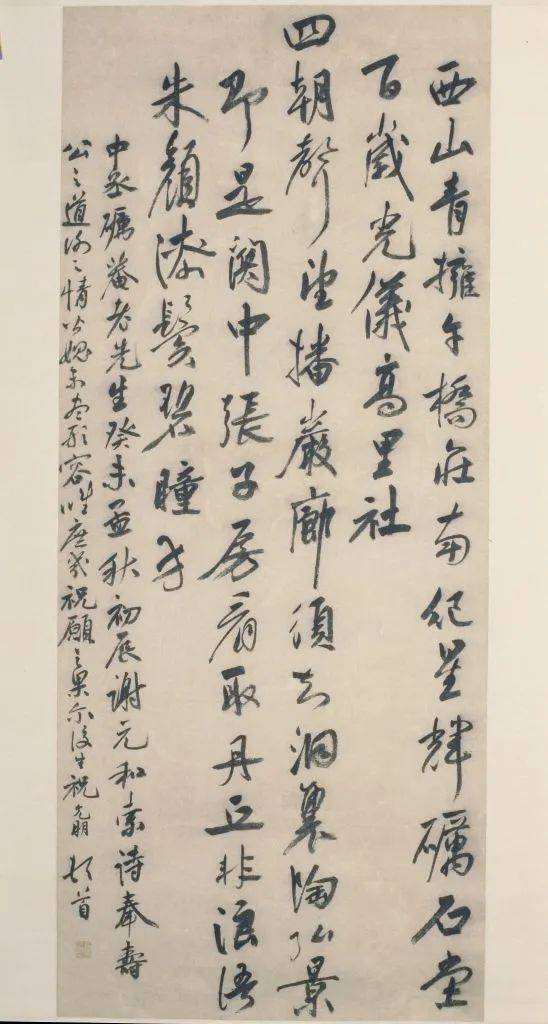 西山青擁午橋莊南紀星輝礪石堂
百歲光儀高里社
四朝聲望播巖廊須知洞裏陶弘景
即是関中張子房看取丹丘非浪語
朱顏漆鬢碧瞳方
中丞礪菴老先生癸未孟秋初辰謝元和索詩奉壽
公之道之情皆媿未盡形容惟庶幾祝願之果尔後生祝允明頓首